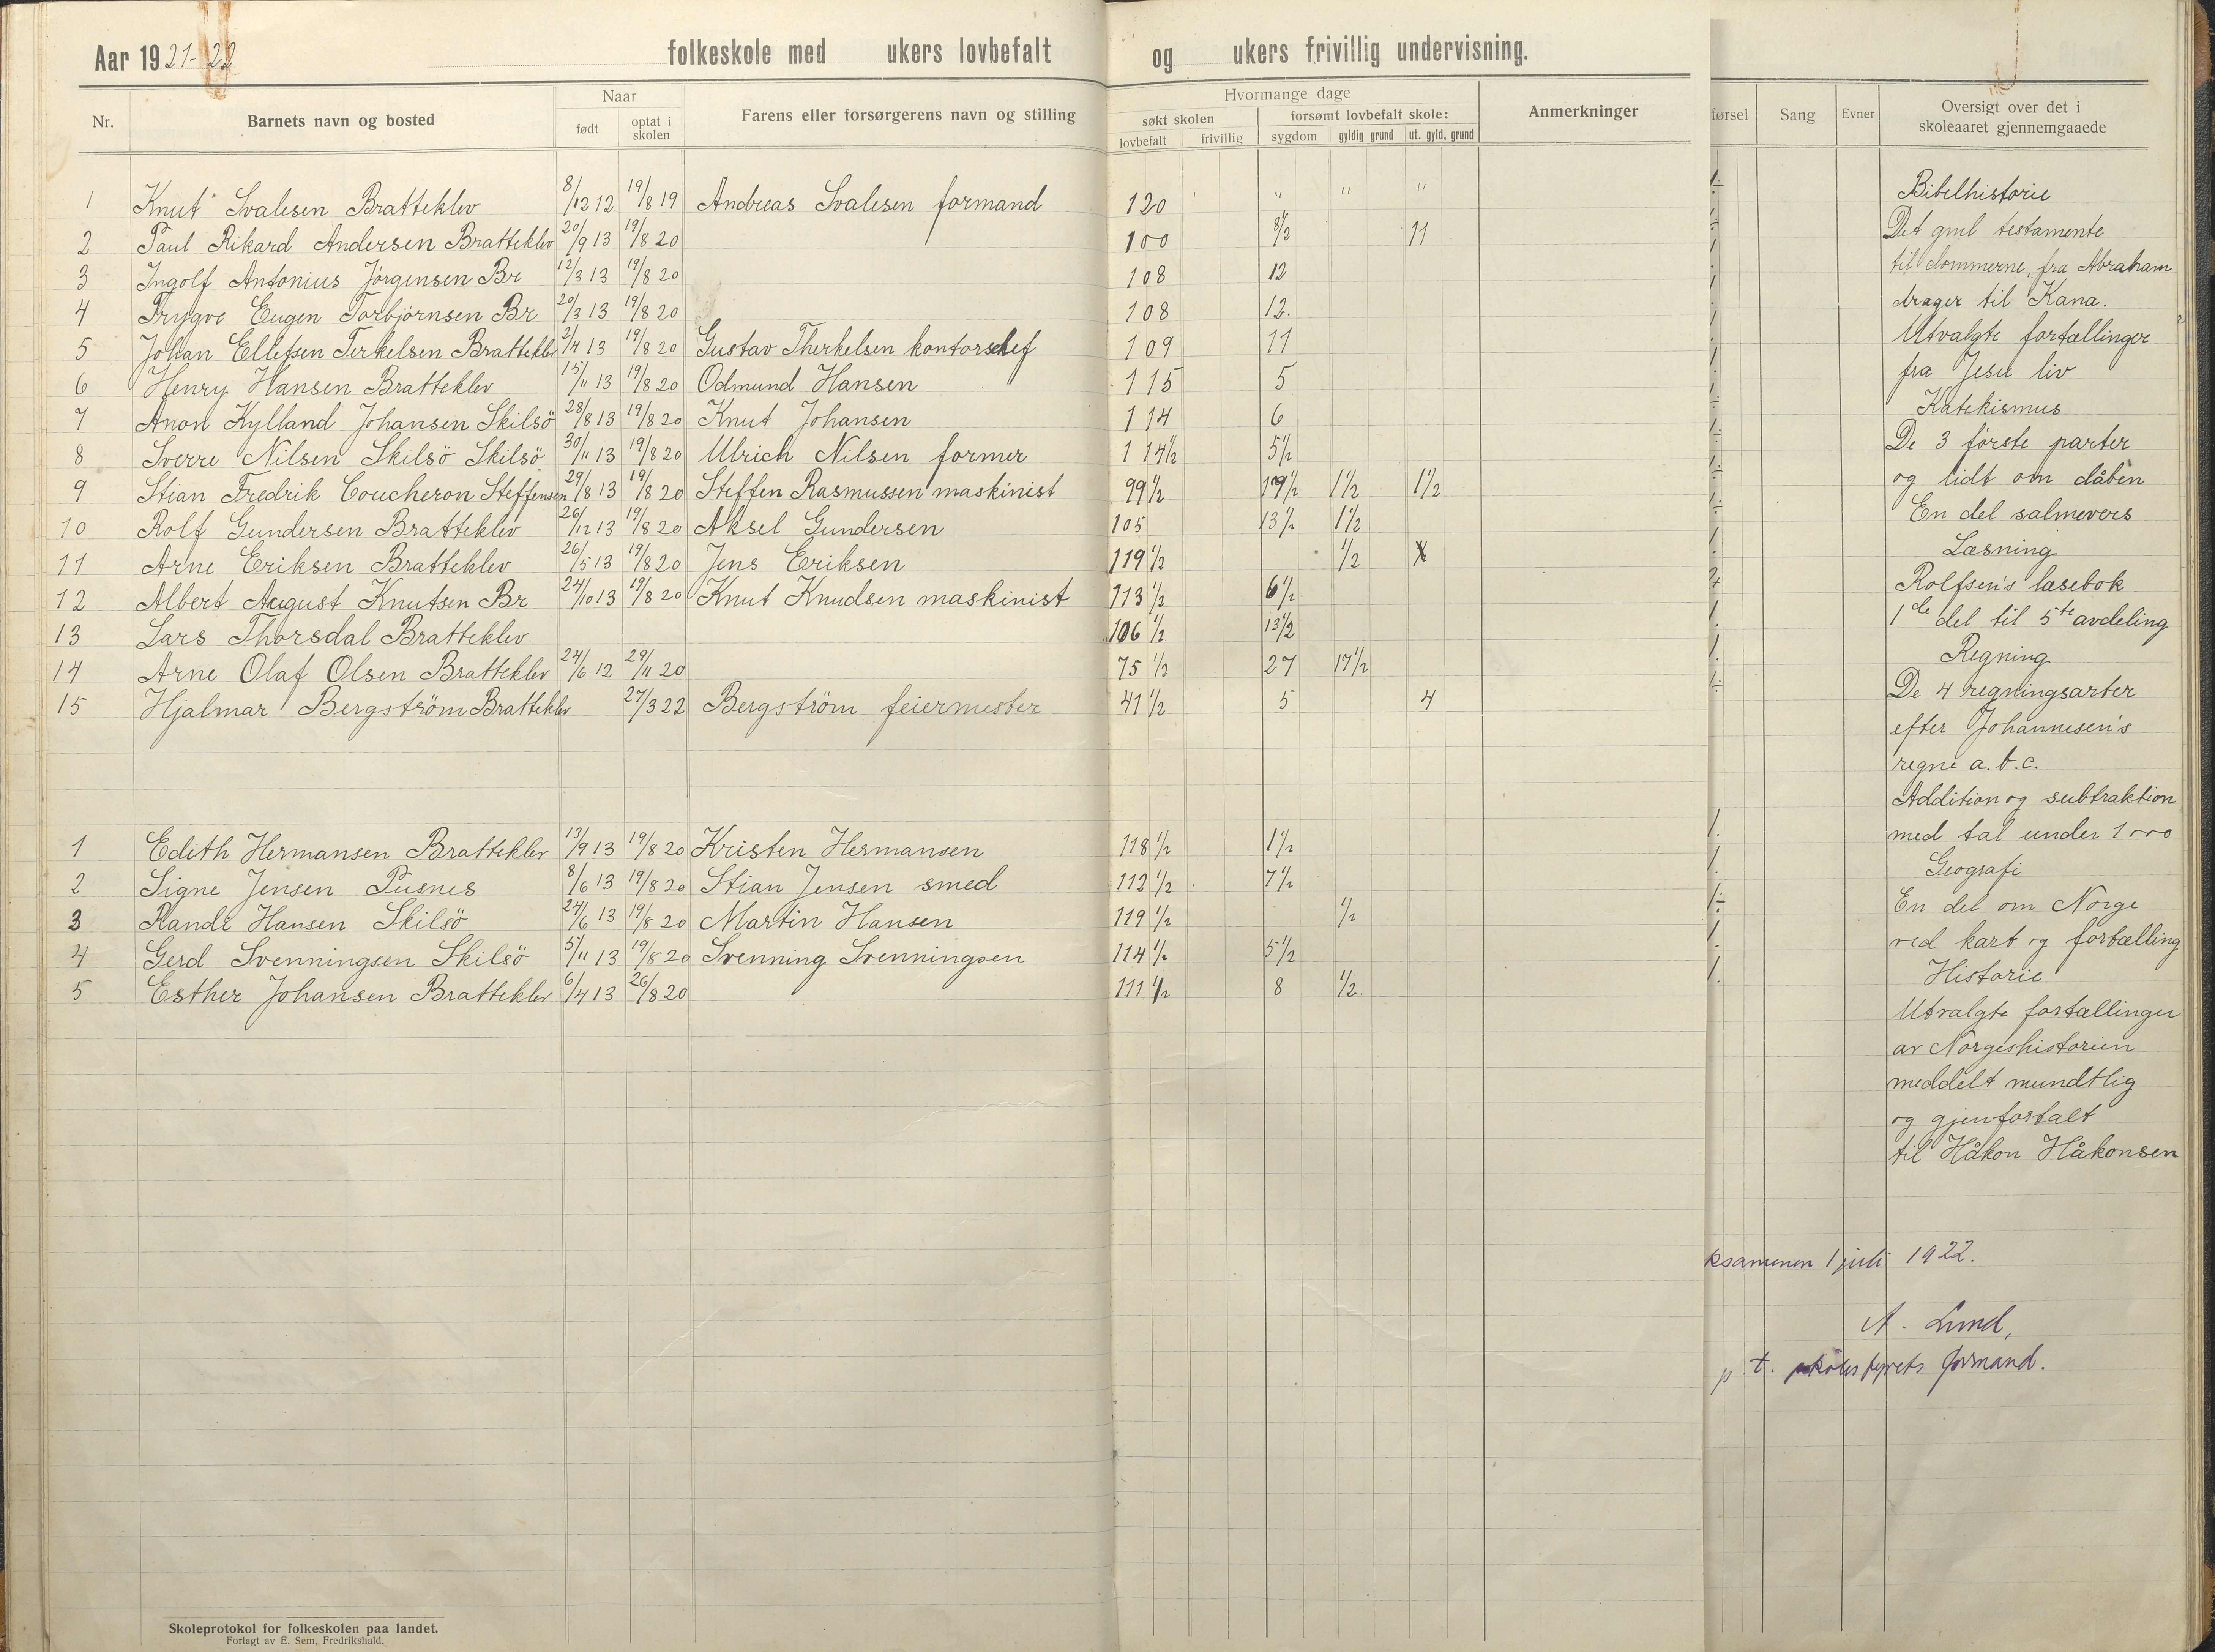 Aar 1921-22 folkeskole med ukers lovbefalt og ukers frivillig undervisning.
Nr. Barnets navn og bosted Naar født optat i skolen Farens eller forsørgerens navn og stilling Hvormange dage søkt skolen lovbefalt frivillig forsømt lovbefalt skole: sygdom gyldig grund ut. gyld. grund Anmerkninger
1 Knut Svalesen Bratteklev 8/12 12 19/8 19 Andreas Svalesen formand 120 " " "
2 Paul Rikard Andersen Bratteklev 20/9 13 19/8 20 100 8 1/2 11
3 Ingolf Antonius Jørgensen Br 12/3 13 19/8 20 108 12
4 Trygve Eugen Torbjörnsen Br 20/3 13 19/8 20 108 12.
5 Johan Ellefsen Terkelsen Bratteklev 2/4 13 19/8 20 Gustav Therkelsen kontorschef 109 11
6 Henry Hansen Bratteklev 15/11 13 19/8 20 Odmund Hansen 115 5
7 Anon Kylland Johansen Skilsö 28/8 13 19/8 20 Knut Johansen 114 6
8 Sverre Nilsen Skilsö Skilsö 30/11 13 19/8 20 Ulrich Nilsen former 114 1/2 5 1/2
9 Stian Fredrik Coucheron Steffensen 29/8 13 19/8 20 Steffen Rasmussen maskinist 99 1/2 1 1/2 1 1/2
10 Rolf Gundersen Bratteklev 26/12 13 19/8 20 Aksel Gundersen 105 13 1/2 1 1/2
11 Arne Eriksen Bratteklev 26/5 13 19/8 20 Jens Eriksen 119 1/2 1/2
12 Albert August Knutsen Br 24/10 13 19/8 20 Knut Knudsen maskinist 113 1/2 6 1/2
13 Lars Thorsdal Bratteklev 106 1/2 13 1/2
14 Arne Olaf Olsen Bratteklev 24/6 12 29/11 20 75 1/2 27 17 1/2
15 Hjalmar Bergström Bratteklev 27/3 22 Bergström feiermester 41 1/2 5 4
1 Edith Hermansen Bratteklev 13/9 13 19/8 20 Kristen Hermansen 118 1/2 1 1/2
2 Signe Jensen Pusnes 8/6 13 19/8 20 Stian Jensen smed 112 1/2 7 1/2
3 Randi Hansen Skilsö 24/6 13 19/8 20 Martin Hansen 119 1/2 1/2
4 Gerd Svenningsen Skilsö 5/11 13 19/8 20 Svenning Svenningsen 114 1/2 5 1/2
5 Esther Johansen Bratteklev 6/4 13 26/8 20 111 1/2 8 1/2.
Skoleprotokol for folkeskolen paa landet.
Forlagt av E. Sem, Fredrikshald.
førsel Sang Evner Oversigt over det i
skoleaaret gjennemgaaede
Bibelhistorie
Det gml testamente
til dommerne, fra Abraham
drager til Kana.
Utvalgte fortællinger
fra Jesu liv
Katekismus
De 3 förste parter
og lidt om dåben
En del salmevers
Læsning
Rolfsen's læsebok
1de del til 5te avdeling
Regning
De 4 regningsarter
efter Johannesen's
regne a.b.c.
Addition og subtraktion
med tal under 1000
Geografi
En del om Norge
ved kart og fortælling
Historie
Utvalgte fortællinger
av Norgeshistorien
meddelt mundtlig
og gjenfortalt
til Håkon Håkonsen
ksamenen 1 juli 1922.
A. Lund,
p. t. skolestyrets formand.